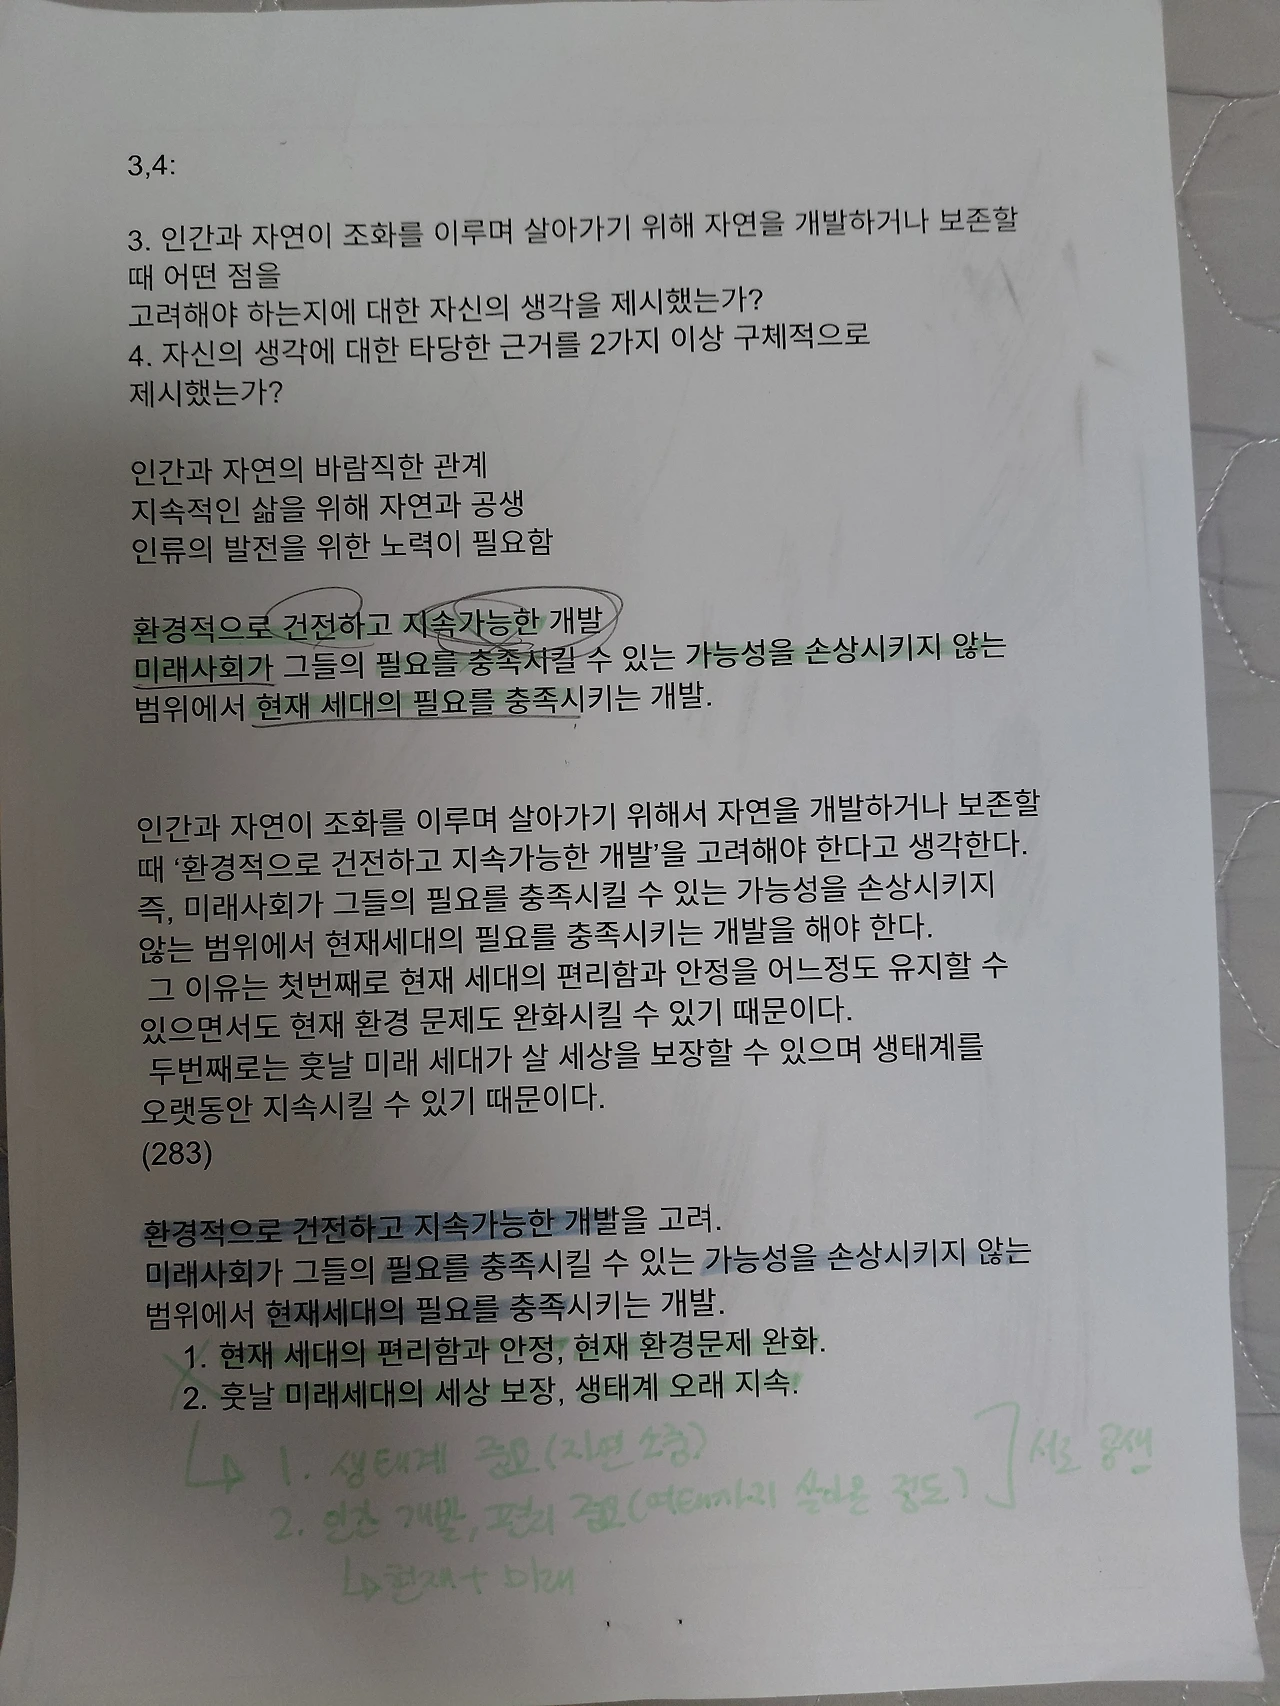 3,4:
3. 인간과 자연이 조화를 이루며 살아가기 위해 자연을 개발하거나 보존할
때 어떤 점을
고려해야 하는지에 대한 자신의 생각을 제시했는가?
4. 자신의 생각에 대한 타당한 근거를 2가지 이상 구체적으로
제시했는가?
인간과 자연의 바람직한 관계
지속적인 삶을 위해 자연과 공생
인류의 발전을 위한 노력이 필요함
환경적으로 건전하고 지속가능한 개발
미래사회가 그들의 필요를 충족시킬 수 있는 가능성을 손상시키지 않는
범위에서 현재 세대의 필요를 충족시키는 개발.
인간과 자연이 조화를 이루며 살아가기 위해서 자연을 개발하거나 보존할
때 ‘환경적으로 건전하고 지속가능한 개발’을 고려해야 한다고 생각한다.
즉, 미래사회가 그들의 필요를 충족시킬 수 있는 가능성을 손상시키지
않는 범위에서 현재세대의 필요를 충족시키는 개발을 해야 한다.
그 이유는 첫번째로 현재 세대의 편리함과 안정을 어느정도 유지할 수
있으면서도 현재 환경 문제도 완화시킬 수 있기 때문이다.
두번째로는 훗날 미래 세대가 살 세상을 보장할 수 있으며 생태계를
오랫동안 지속시킬 수 있기 때문이다.
(283)
환경적으로 건전하고 지속가능한 개발을 고려.
미래사회가 그들의 필요를 충족시킬 수 있는 가능성을 손상시키지 않는
범위에서 현재세대의 필요를 충족시키는 개발.
1. 현재 세대의 편리함과 안정, 현재 환경문제 완화.
2. 훗날 미래세대의 세상 보장, 생태계 오래 지속.
1. 생태계 중요(자연 소중)
2. 인간 개발, 편리 중요(여태까지 살아온 정도)
서로 공생
현재 + 미래